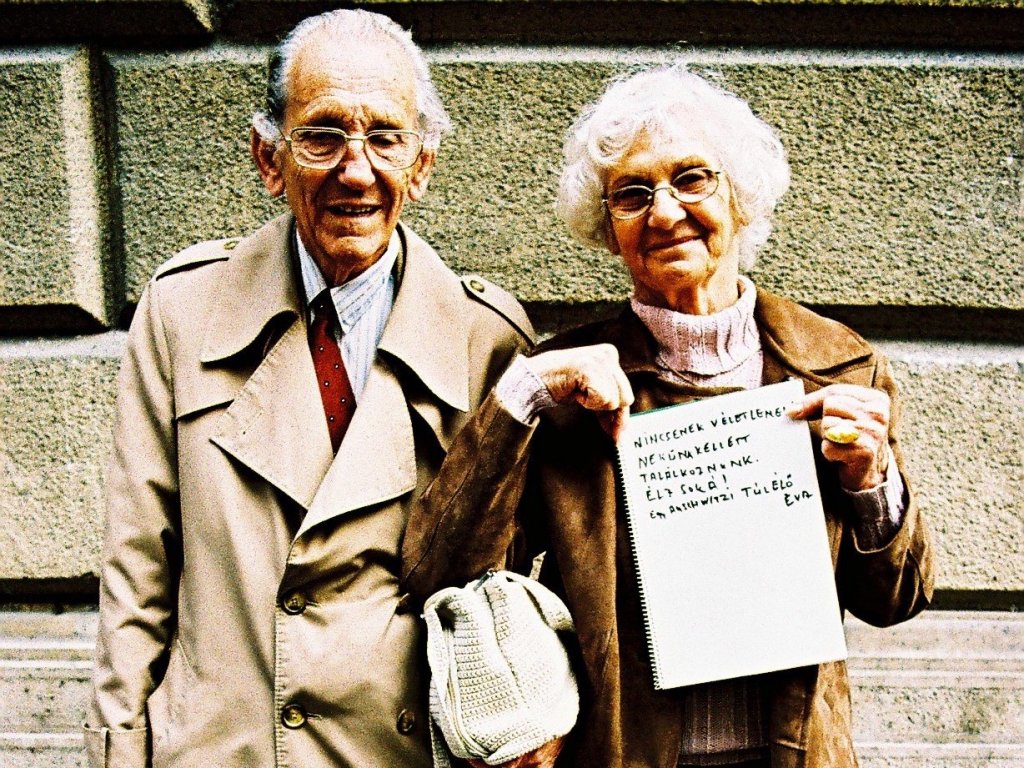 NINCSENEK VÉLETLENEK
NEKÜNK KELLETT
TALÁLKOZNUNK.
ÉLJ SOKÁ!
EGY AUSCHWITZI TÚLÉLŐ
ÉVA